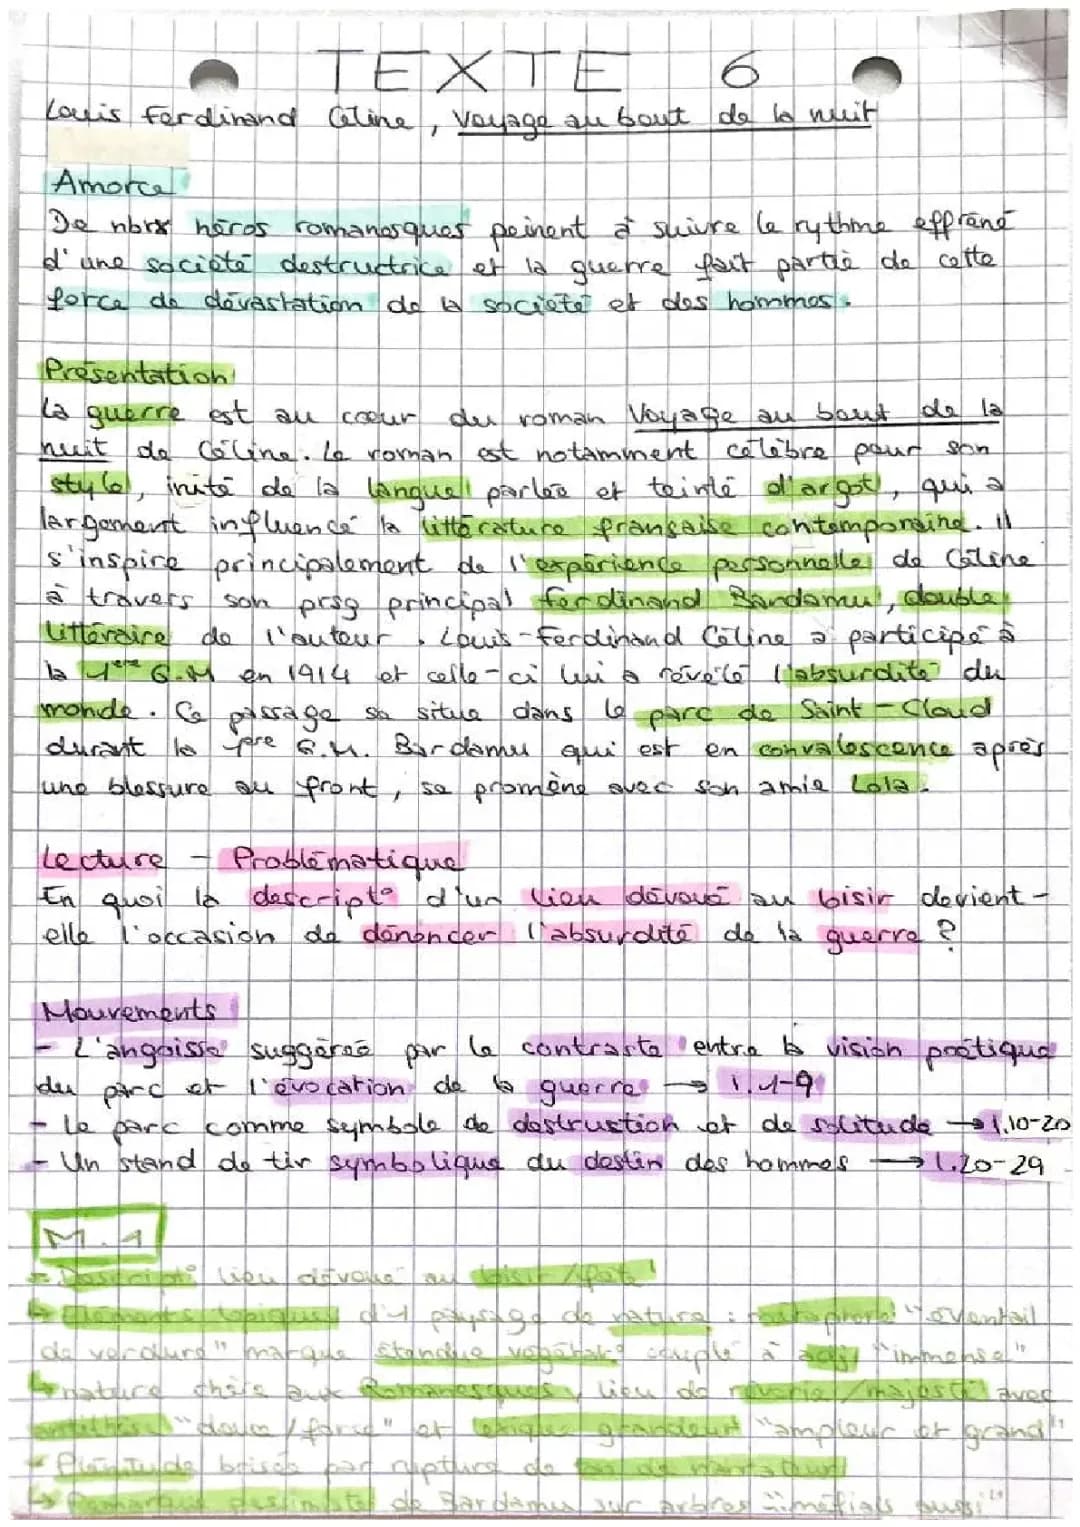 TEXTE 6
Louis Ferdinand Céline, Voyage au bout de la nuit
Amorce
De nbrx héros romanesques peinent à suivre le rythme effréné
d'une société destructrice et la guerre fait partie de cette
force de dévastation de la société et des hommes.
Présentation
La guerre est au cœur du roman Voyage au bout de la
nuit de Céline. Le roman est notamment célèbre pour son
style, imité de la langue parlée et teinté d'argot, qui a
largement influencé la littérature française contemporaine. Il
s'inspire principalement de l'expérience personnelle de Céline
à travers son prsg principal Ferdinand Bardamu, double
littéraire de l'auteur. Louis-Ferdinand Céline a participé à
la 1ère G.M en 1914 et celle-ci lui a révélé l'absurdité du
monde. Ce passage se situe dans le parc de Saint-Cloud
durant la 1ère G.M. Bardamu qui est en convalescence après
une blessure au front, se promène avec son amie Lola.
Lecture - Problématique
En quoi la descript° d'un lieu dévoué au loisir devient-
elle l'occasion de dénoncer l'absurdité de la guerre ?
Mouvements
- L'angoisse suggérée par le contraste entre la vision poétique
du parc et l'évocation de la guerre → l.1-9
- Le parc comme symbole de destruction et de solitude → l.10-20
- Un stand de tir symbolique du destin des hommes → l.20-29
M.1
Descript° lieu dévoué au loisir / fête
↳ Eléments topiques d'1 paysage de nature : métaphore "éventail
de verdure" marque étendue végétale couplé à adj "immense"
↳ nature chère aux Romanesques, lieu de rêverie / majesté avec
antithèse "doux / force" et lexique grandeur "ampleur et grand"
Plénitude brisée par rupture de ton de narrateur
↳ Remarque pessimiste de Bardamu sur arbres "méfiais aussi"